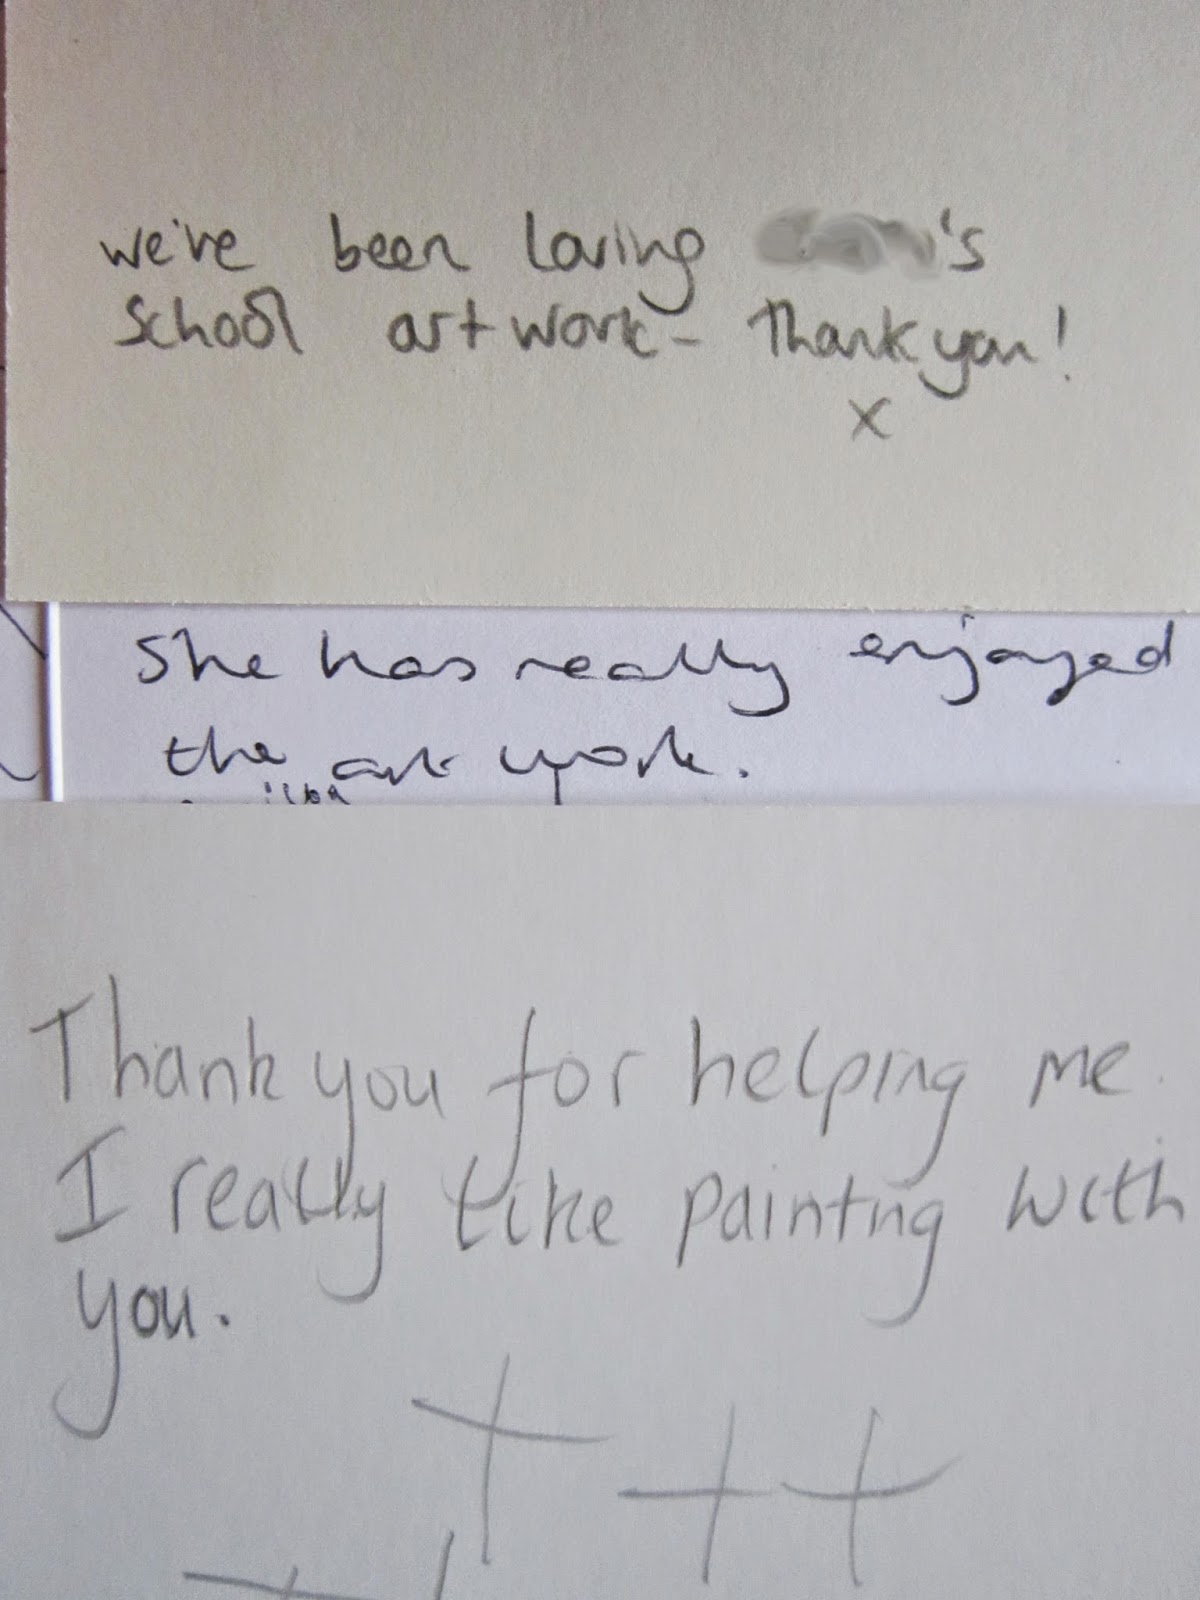 we've been loving 's
School artwork - Thank you!
x
She has really enjoyed
the art work.
Thank you for helping me.
I really like painting with
you.